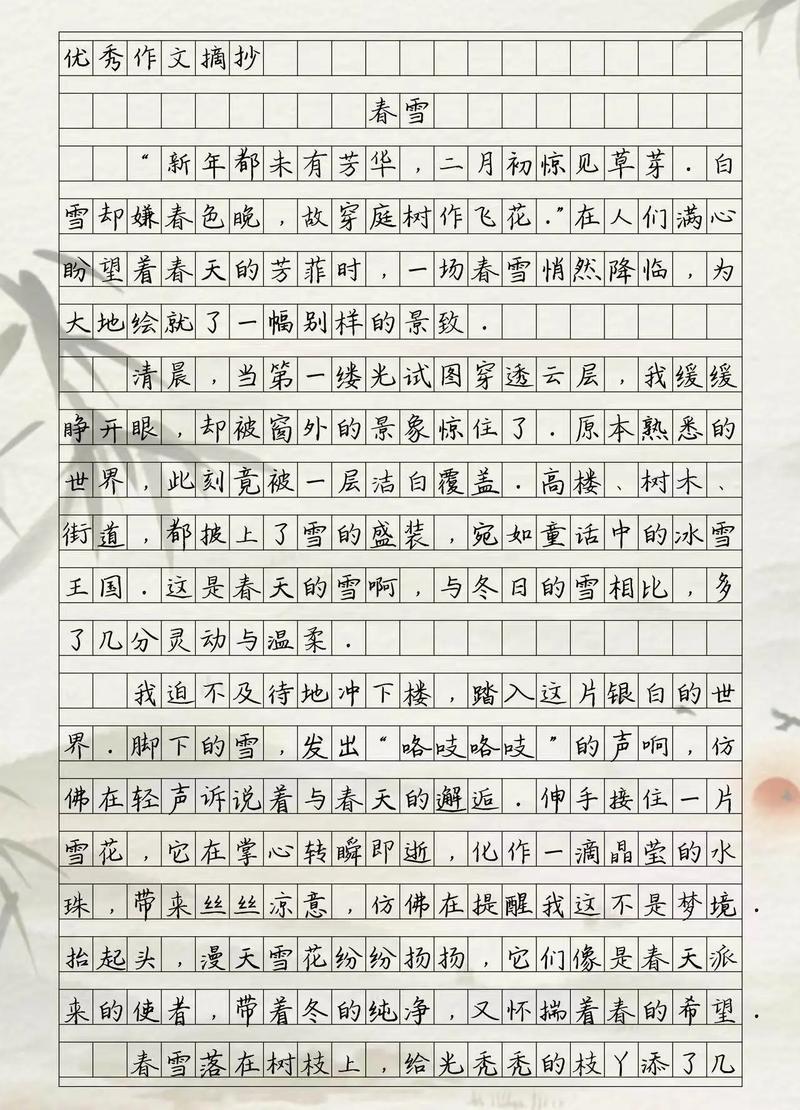 优秀作文摘抄
春雪
“新年都未有芳华，二月初惊见草芽．白
雪却嫌春色晚，故穿庭树作飞花．”在人们满心
盼望着春天的芳菲时，一场春雪悄然降临，为
大地绘就了一幅别样的景致．
清晨，当第一缕光试图穿透云层，我缓缓
睁开眼，却被窗外的景象惊住了．原本熟悉的
世界，此刻竟被一层洁白覆盖．高楼、树木、
街道，都披上了雪的盛装，宛如童话中的冰雪
王国．这是春天的雪啊，与冬日的雪相比，多
了几分灵动与温柔．
我迫不及待地冲下楼，踏入这片银白的世
界．脚下的雪，发出“咯吱咯吱”的声响，仿
佛在轻声诉说着与春天的邂逅．伸手接住一片
雪花，它在掌心转瞬即逝，化作一滴晶莹的水
珠，带来丝丝凉意，仿佛在提醒我这不是梦境．
抬起头，漫天雪花纷纷扬扬，它们像是春天派
来的使者，带着冬的纯净，又怀揣着春的希望．
春雪落在树枝上，给光秃秃的枝丫添了几